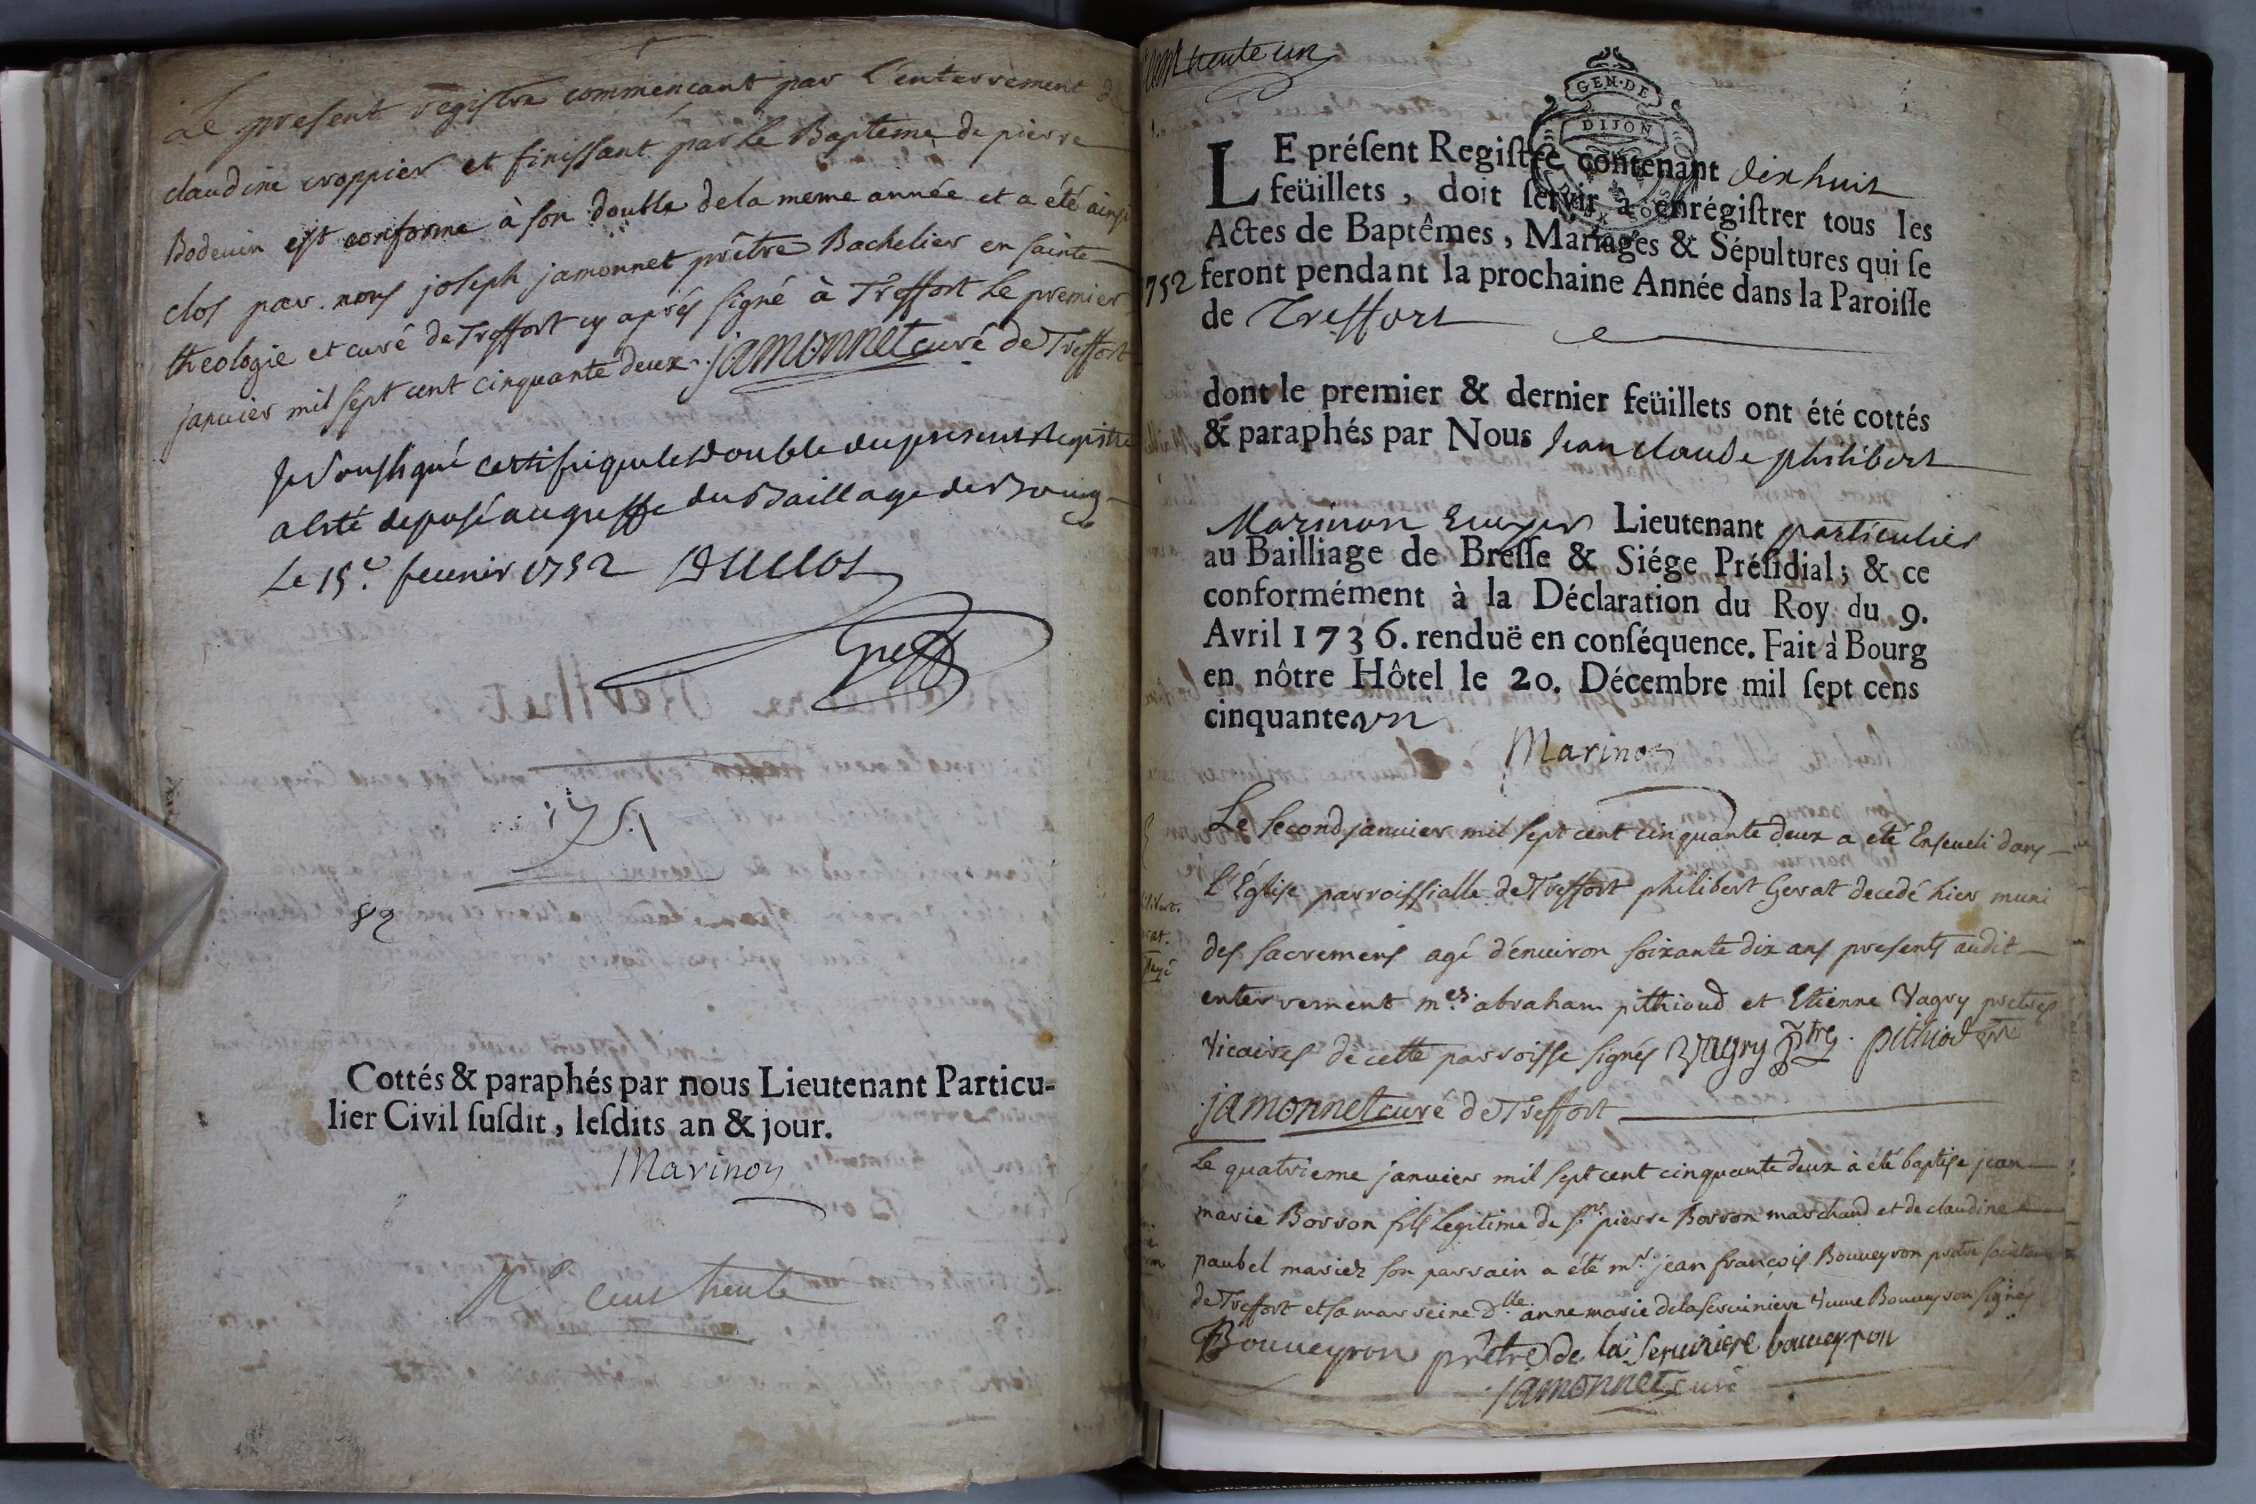 Le present registre commencant par l'enterrement de
claudine croppier et finissant par le Bapteme de pierre
Bodevin est conforme à son double de la meme année et a été ainsi
clos par nous joseph jamonnet prêtre Bachelier en sainte
theologie et curé de Treffort cy aprés signé à Treffort le premier
janvier mil sept cent cinquante deux. jamonnet curé de Treffort
Je Soussigné certiffie que le double du present Registre
a esté deposé au greffe du Baillage de Bourg
Le 15e. fevrier 1752 Duclos
Greff
1751
Cottés & paraphés par nous Lieutenant Particu-
lier Civil ſuſdit, leſdits an & jour.
Marinon
cent trente
cent trente un
GEN·DE
DIJON
LE préſent Regiſtre contenant dix huit
feüillets, doit ſervir à enrégiſtrer tous les
Actes de Baptêmes, Mariages & Sépultures qui ſe
1752 feront pendant la prochaine Année dans la Paroiſſe
de Treffort
dont le premier & dernier feüillets ont été cottés
& paraphés par Nous Jean claude philibert
Marinon Ecuyer Lieutenant particulier
au Bailliage de Breſſe & Siége Préſidial; & ce
conformément à la Déclaration du Roy du 9.
Avril 1736. renduë en conſéquence. Fait à Bourg
en nôtre Hôtel le 20. Décembre mil ſept cens
cinquante un
Marinon
Le second janvier mil sept cent cinquante deux a eté Enseveli dans
L'Église parroissialle de Treffort philibert Gerat decedé hier muni
des sacremens agé d'environ soixante dix ans presents audit
enterrement mes. abraham pithioud et Etienne Vagry pretres
Vicaires de cette parroisse signés Vagry ptre. pithiod
jamonnet curé de Treffort
Le quatrieme janvier mil sept cent cinquante deux à été baptisé jean
marie Borron fils legitime de sr. pierre Borron marchand et de claudine
paubel mariez son parrain a été mr. jean françois Bouveyron pretre societaire
de Treffort et sa marreine dlle. anne marie de la serviniere Bouveyron signés
Bouveyron prêtre de la serviniere bouveyron
jamonnet curé